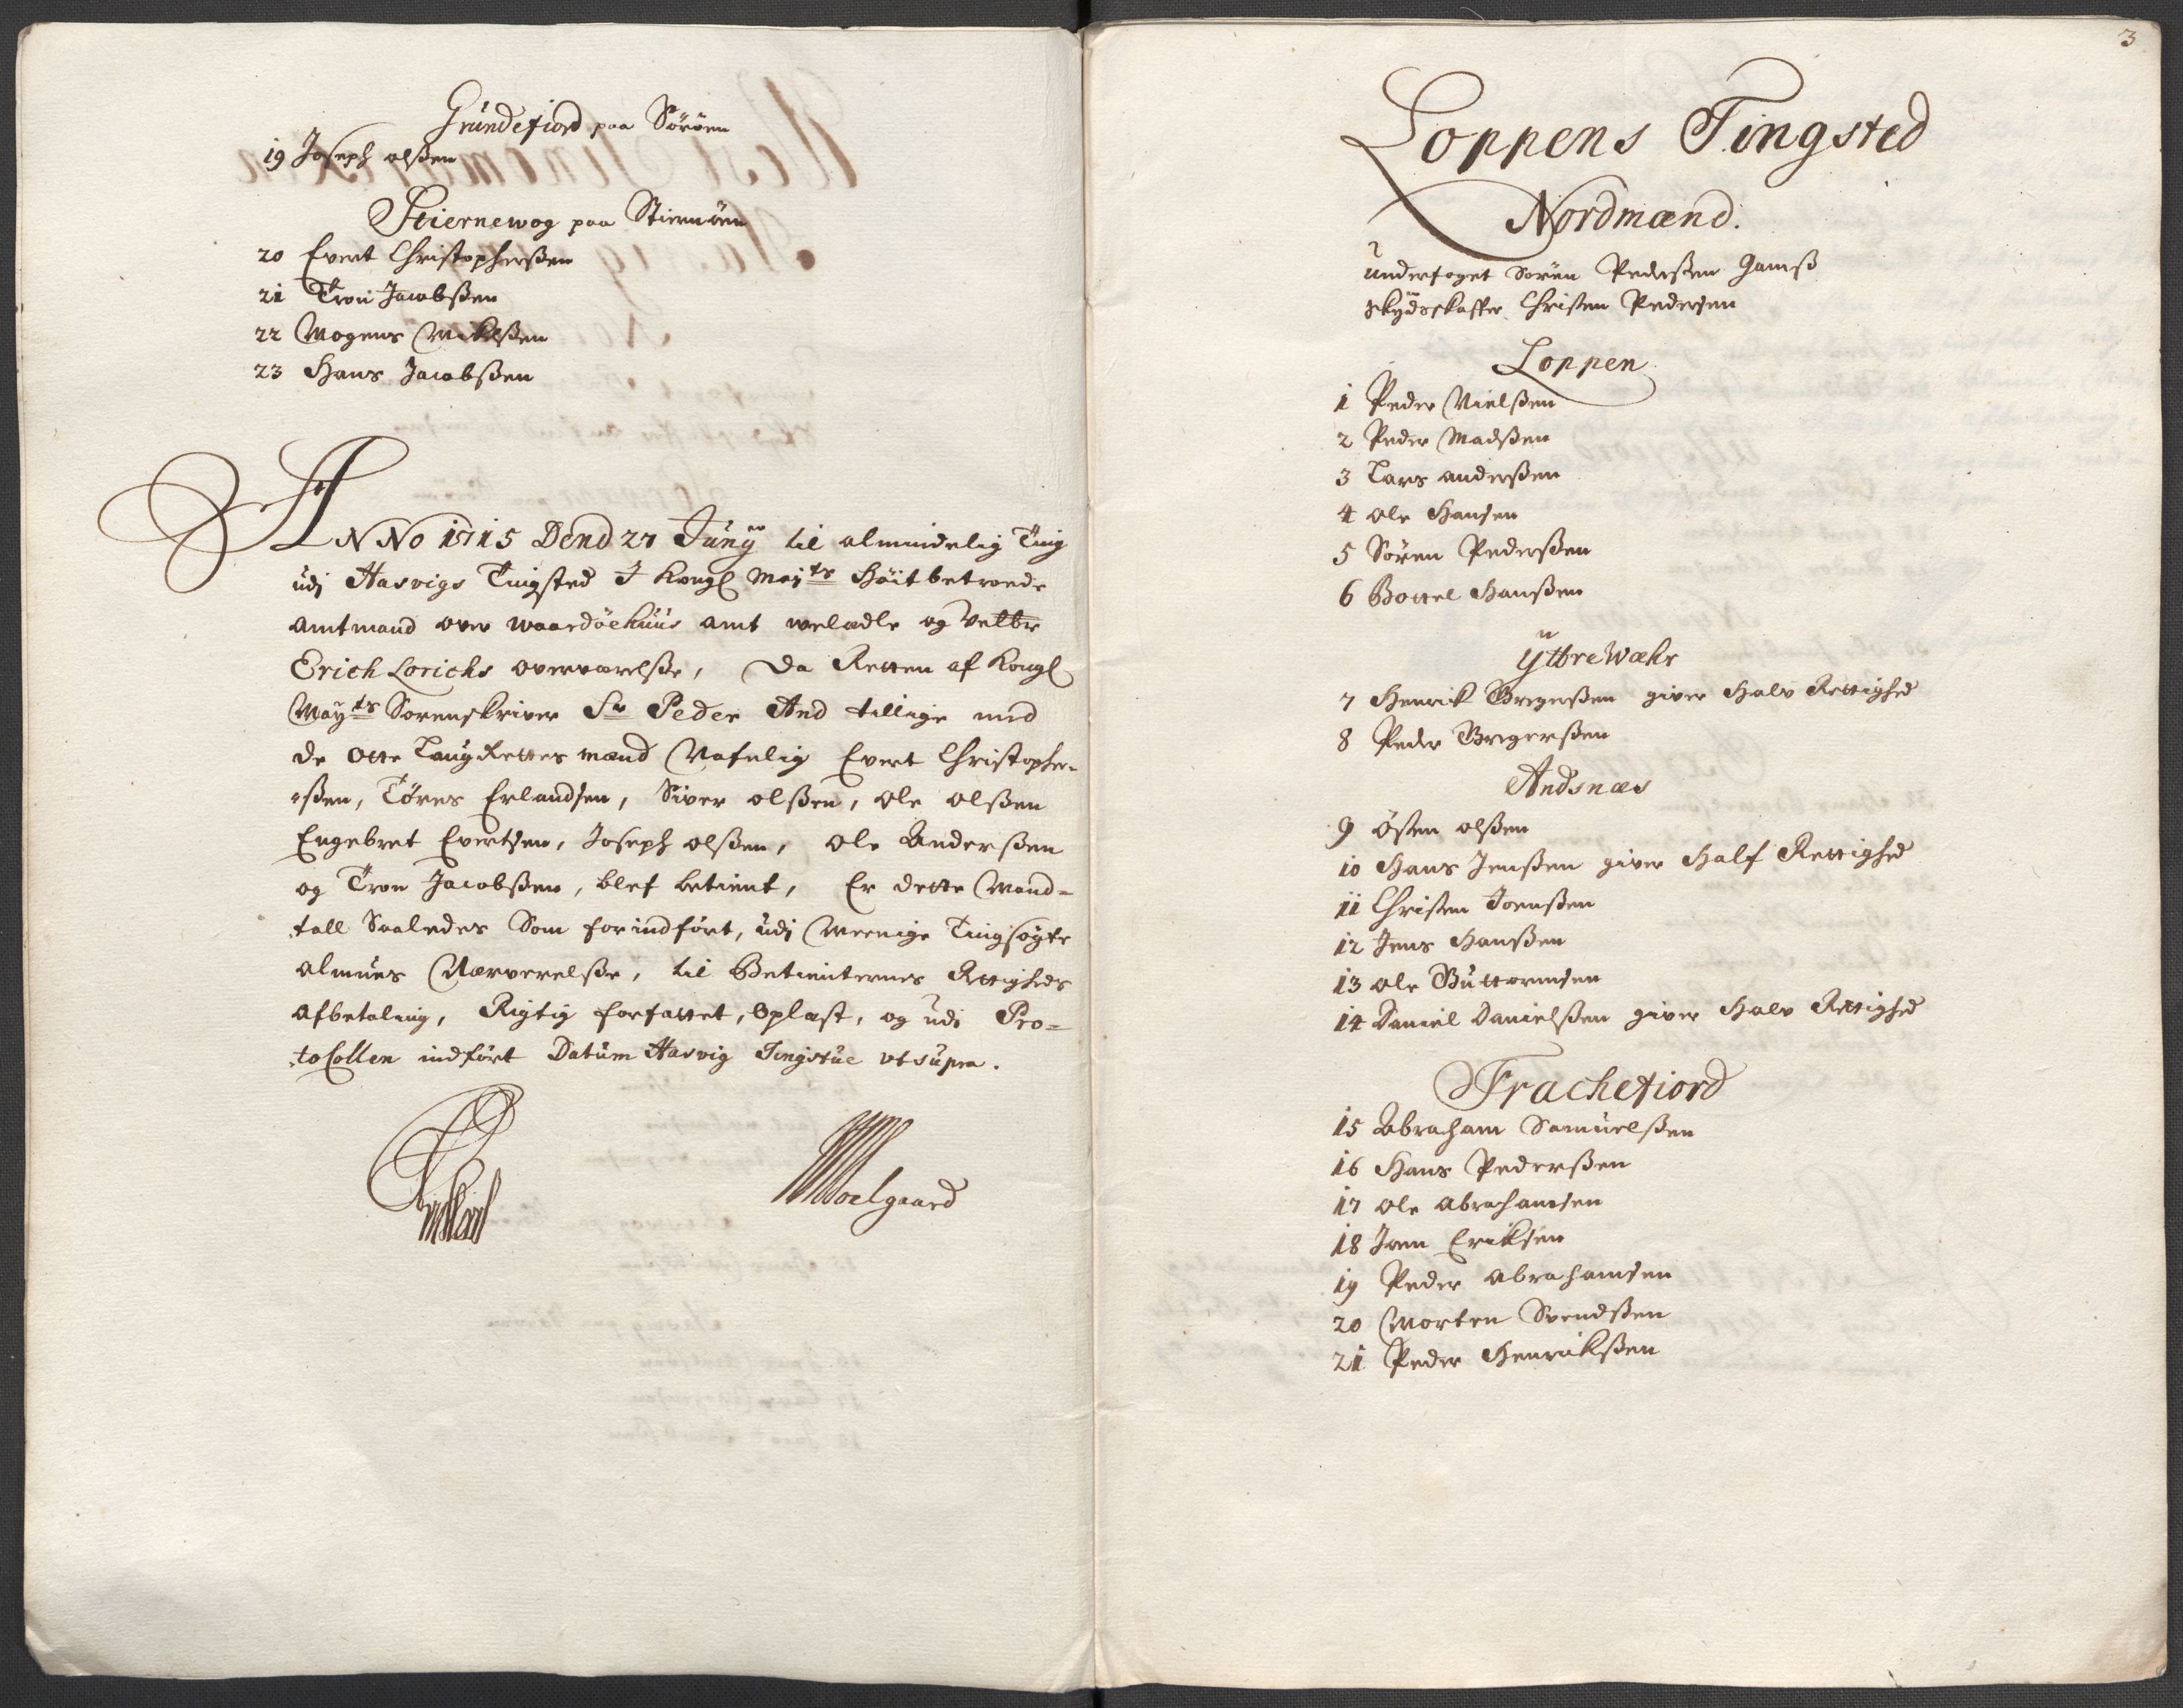 Grundefiord paa Sörøen
19 Joseph olßen
Stiernewog paa Stiernöen
20 Evert Christopherßen
21 Tron Jacobßen
22 Mogens Mikelßen
23 Hans Jacobßen
ANNo 1715 Dend 27 Juny til almindelig Ting
udj Hasvigs Tingsted J Kongl Maÿts Höitbetroede
Amtmand over Waardöehuus Amt welædle og Velbr
Erich Lorichs overværelße, Da Retten af Kongl
Mayts Sorenskriver Sr Peder And tillige med
de otte LaugRettes mænd Nafnlig Evert Christopher-
-ßen, Töres Erlandsen, Siver olßen, Ole olßen
Engebret Evertsen, Joseph olßen, Ole Anderßen
og Tron Jacobßen, blef betient, Er dette Mand-
tall Saaledes Som forindfört, udj Meenige Tingsøgte
Almues Nærverelße, til Betienternes Rettigheds
Afbetaling, Rigtig forfattet, Oplæst, og udi Pro-
toCollen indfört Datum Hasvig Tingstue ut supra.
Soelgaard
3
Loppens Tingsted
Nordmænd.
Underfoget Sören Pederßen Gamß
Skydsskaffer Christen Pedersen
Loppen
1 Peder Nielßen
2 Peder Madßen
3 Lars anderßen
4 Ole Hansen
5 Sören Pederßen
6 Bottel Hanßen
YttreWæhr
7 Henrik Bregerßen giver Halv Rettighed
8 Peder Bregerßen
Andsnæs
9 Østen olßen
10 Hans Jenßen giver Half Rettighed
11 Christen Joenßen
12 Jens Hanßen
13 Ole Guttormsen
14 Daniel Danielßen giver Halv Rettighed
Frachefiord
15 Abraham Samuelßen
16 Hans Pederßen
17 Ole Abrahamsen
18 Joen Eriksen
19 Peder Abrahamsen
20 Morten Svendßen
21 Peder Henrikßen